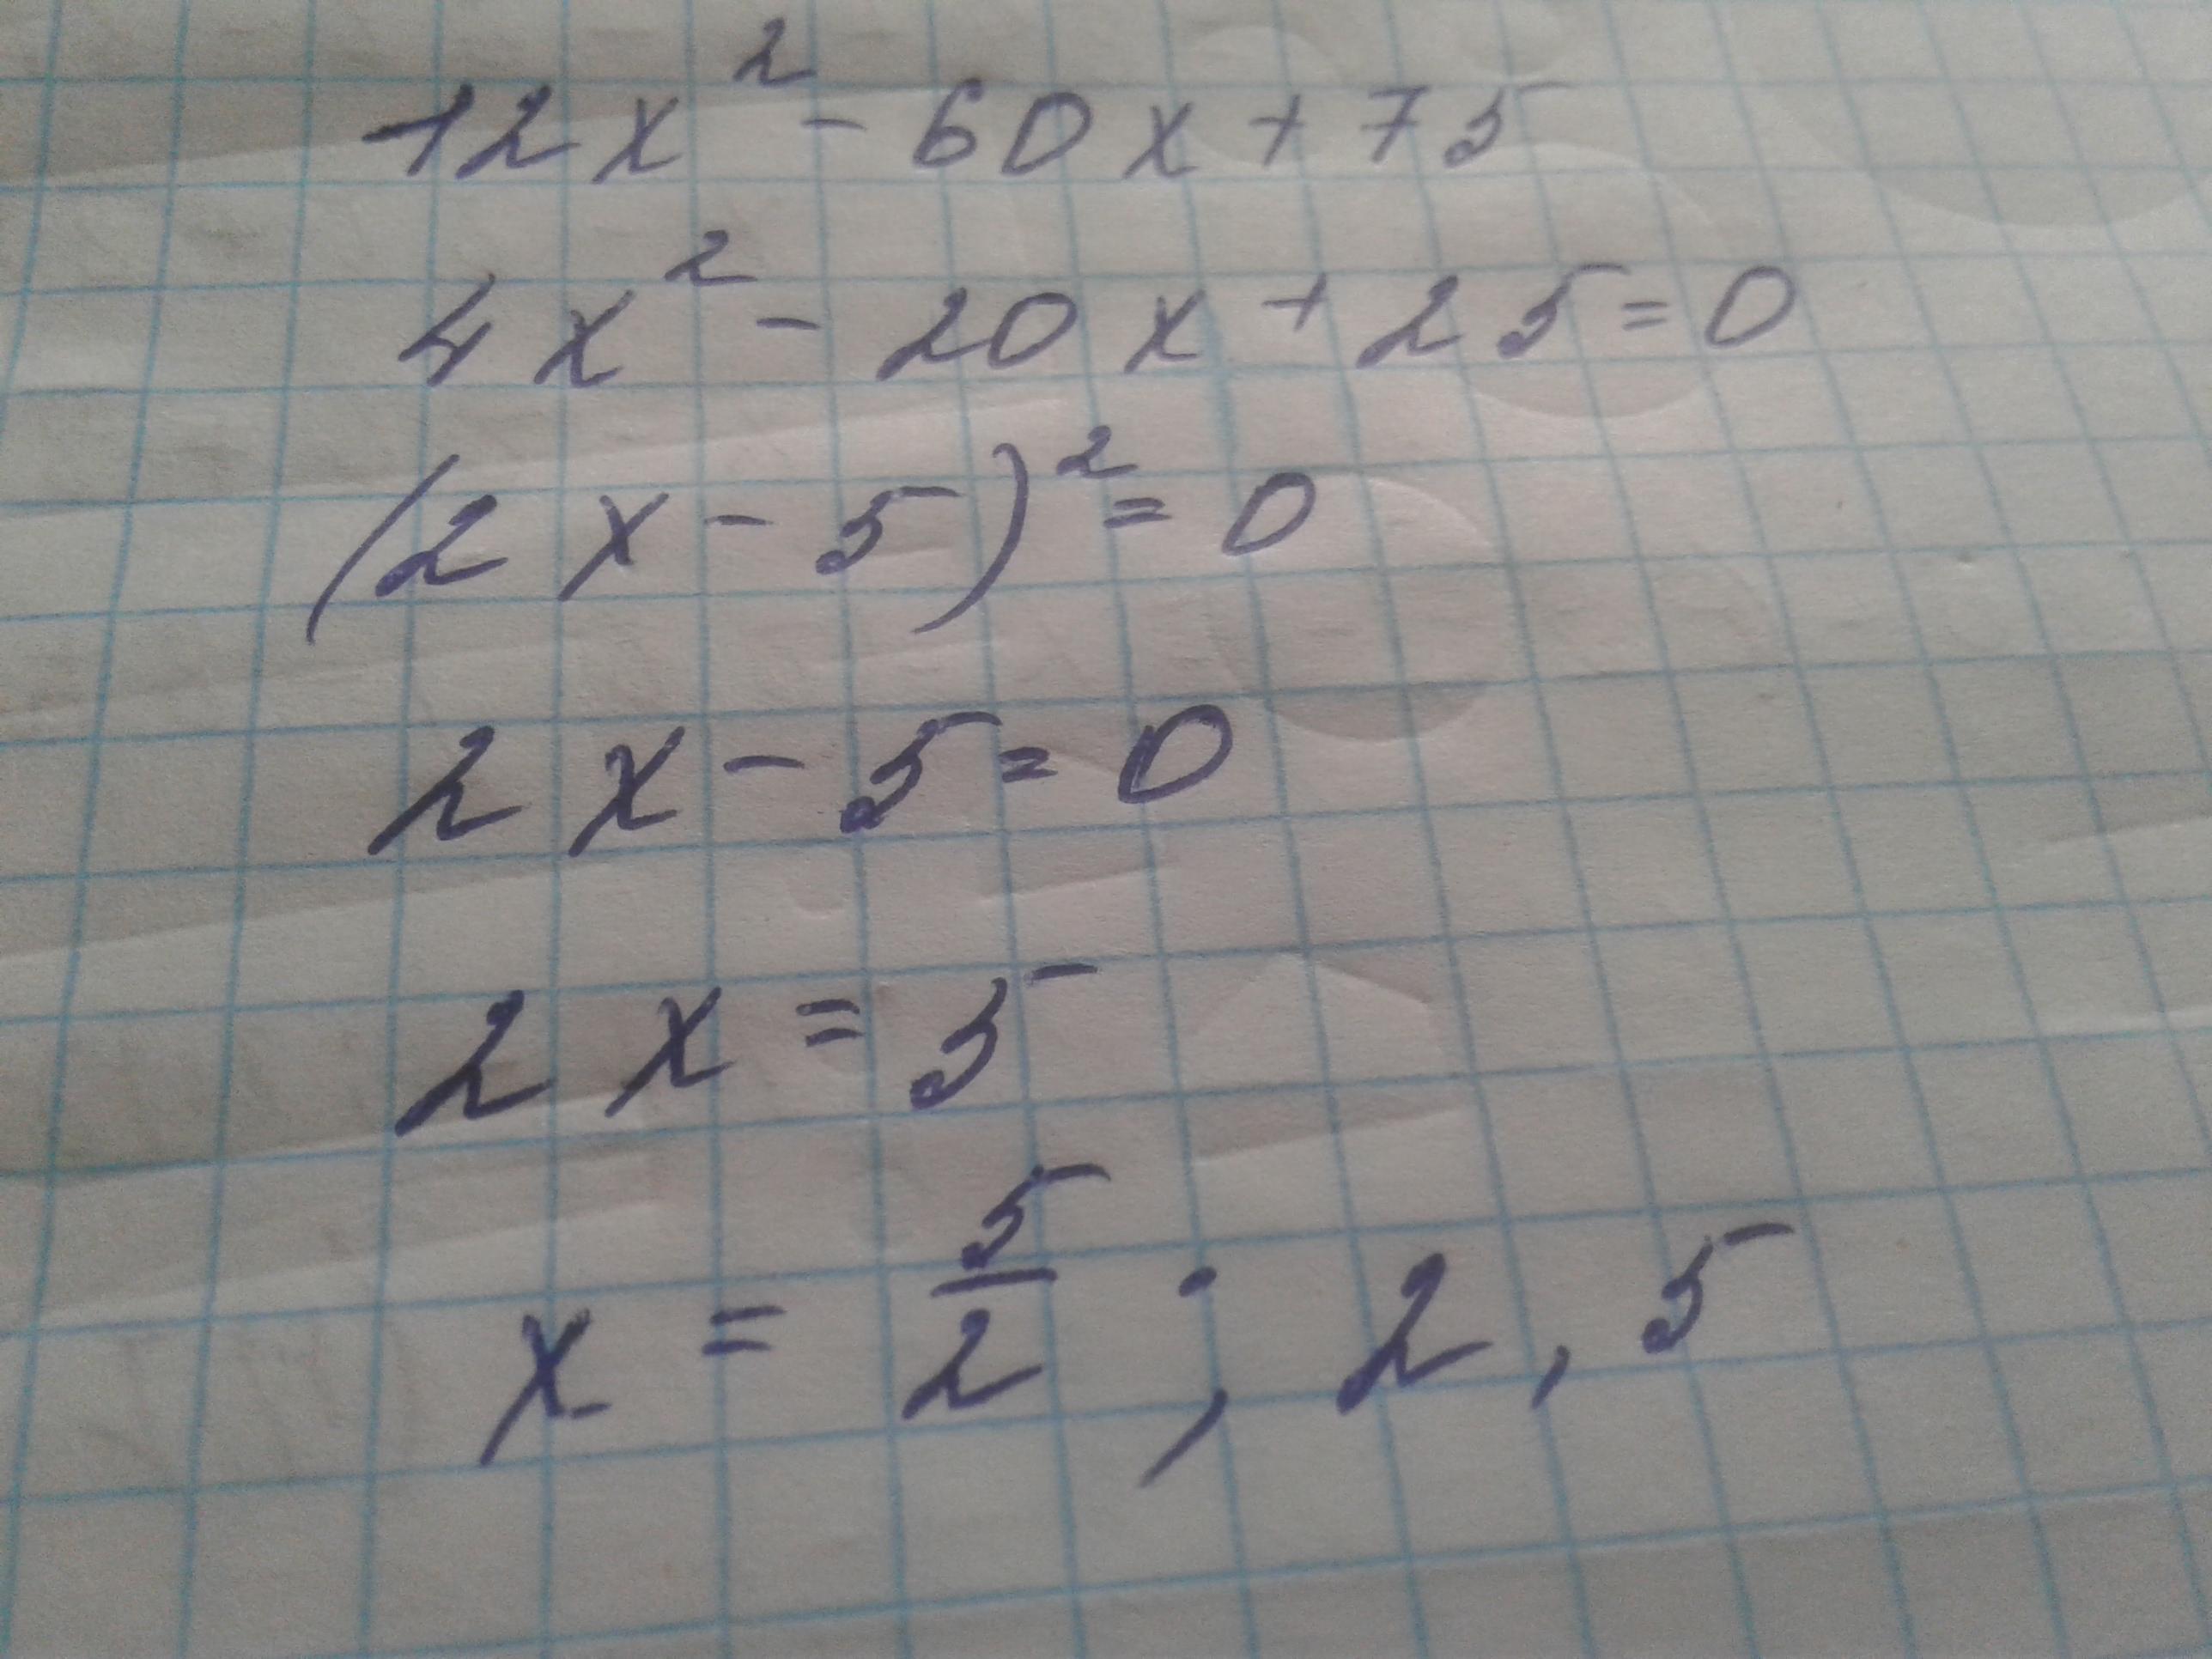 12x² - 60x + 75
4x² - 20x + 25 = 0
(2x - 5)² = 0
2x - 5 = 0
2x = 5
x = 5/2 ; 2,5